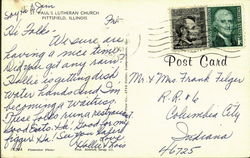 ST. PAUL'S LUTHERAN CHURCH
PITTSFIELD, ILLINOIS
Hi Folks.
We sure are
having a nice time.
Did you get any rain?
Hollie is getting dish
water hands and I'm
becoming a waitress.
These folks running restaurant
Good Eats. Ha. Good for my
figger. Ha! See you later
Love
Hollie & Ross
Post Card
Mr & Mrs Frank Felger
R.R. #6
Columbia City
Indiana
46725